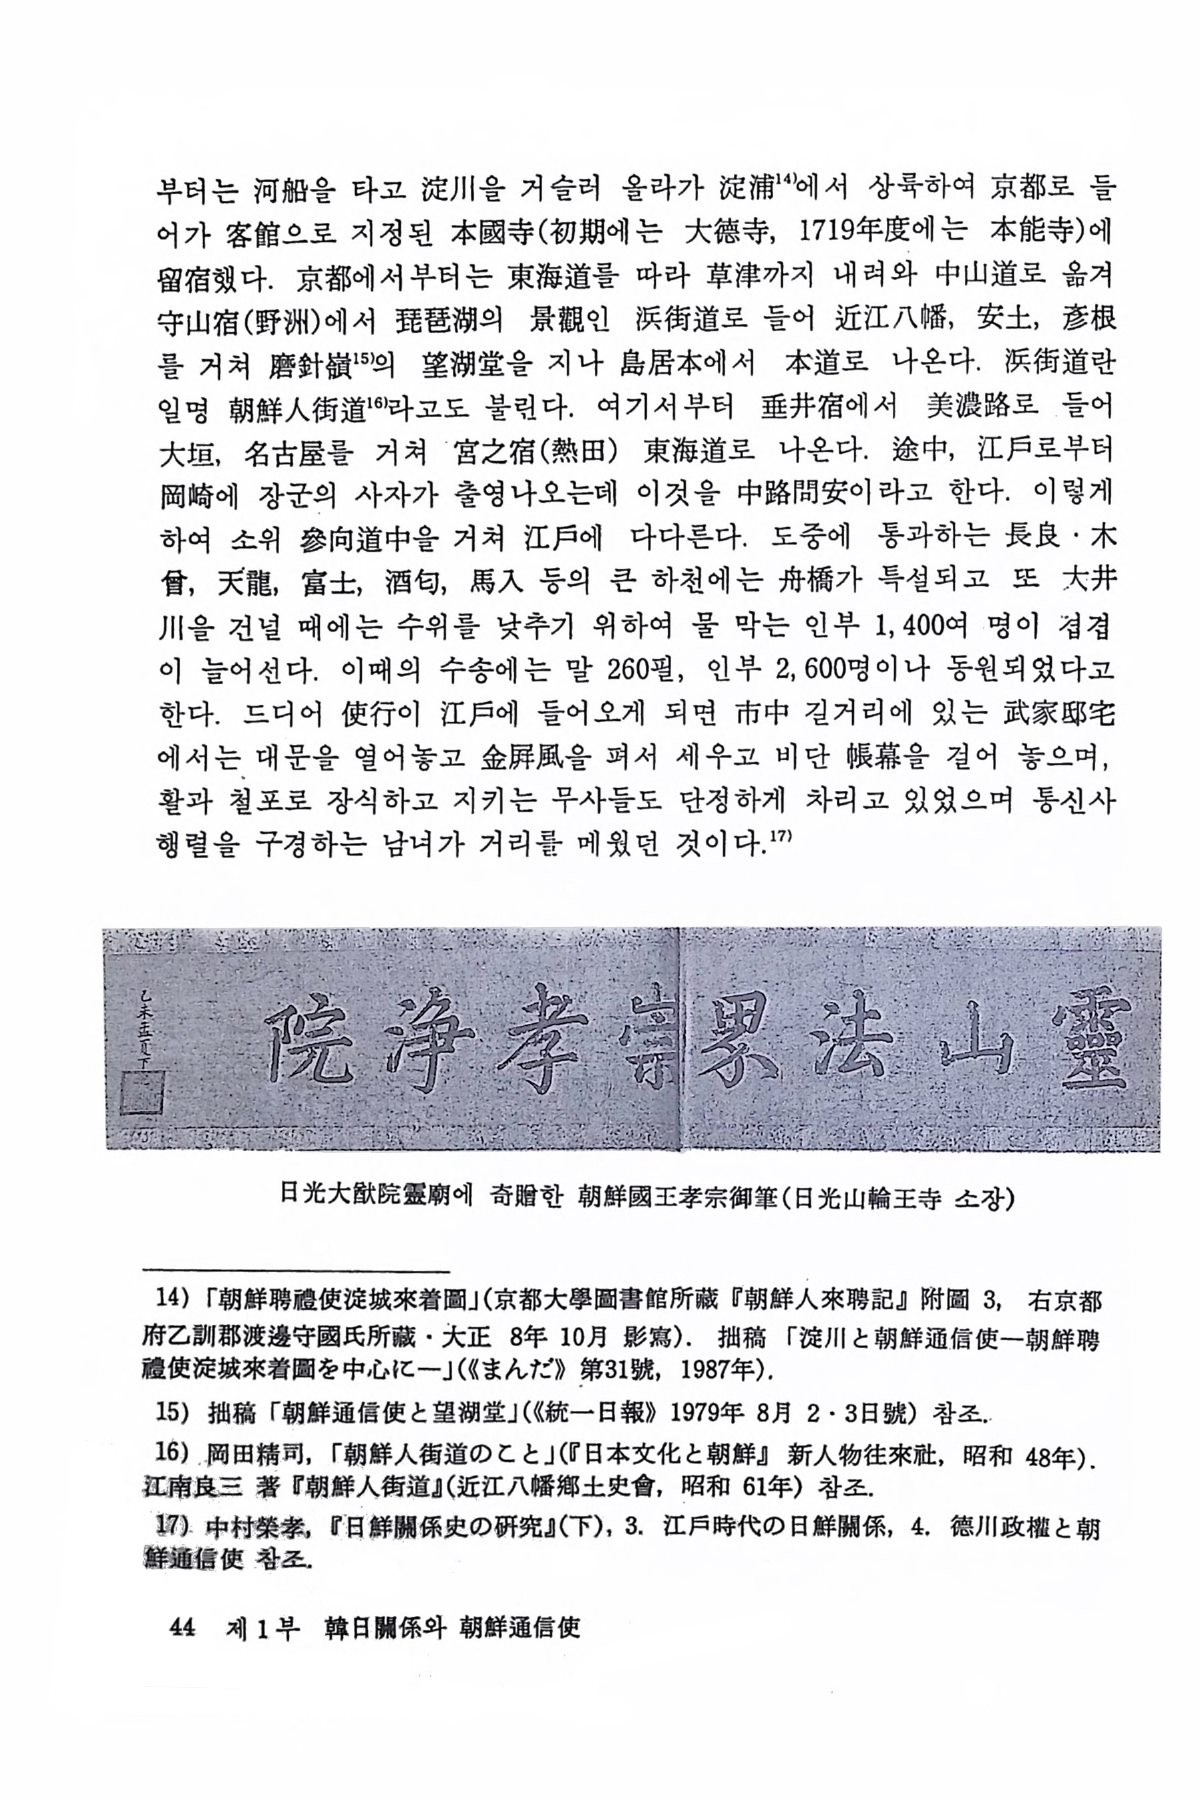 부터는 河船을 타고 淀川을 거슬러 올라가 淀浦14)에서 상륙하여 京都로 들
어가 客館으로 지정된 本國寺(初期에는 大德寺, 1719年度에는 本能寺)에
留宿했다. 京都에서부터는 東海道를 따라 草津까지 내려와 中山道로 옮겨
守山宿(野洲)에서 琵琶湖의 景觀인 浜街道로 들어 近江八幡, 安土, 彥根
를 거쳐 磨針嶺15)의 望湖堂을 지나 鳥居本에서 本道로 나온다. 浜街道란
일명 朝鮮人街道16)라고도 불린다. 여기서부터 垂井宿에서 美濃路로 들어
大垣, 名古屋를 거쳐 宮之宿(熱田) 東海道로 나온다. 途中, 江戶로부터
岡崎에 장군의 사자가 출영나오는데 이것을 中路問安이라고 한다. 이렇게
하여 소위 參向道中을 거쳐 江戶에 다다른다. 도중에 통과하는 長良·木
曾, 天龍, 富士, 酒匂, 馬入 등의 큰 하천에는 舟橋가 특설되고 또 大井
川을 건널 때에는 수위를 낮추기 위하여 물 막는 인부 1,400여 명이 겹겹
이 늘어선다. 이때의 수송에는 말 260필, 인부 2,600명이나 동원되었다고
한다. 드디어 使行이 江戶에 들어오게 되면 市中 길거리에 있는 武家邸宅
에서는 대문을 열어놓고 金屛風을 펴서 세우고 비단 帳幕을 걸어 놓으며,
활과 철포로 장식하고 지키는 무사들도 단정하게 차리고 있었으며 통신사
행렬을 구경하는 남녀가 거리를 메웠던 것이다.17)
靈山法界崇孝淨院
乙未孟夏下
日光大猷院靈廟에 寄贈한 朝鮮國王孝宗御筆(日光山輪王寺 소장)
14) 「朝鮮聘禮使淀城來着圖」(京都大學圖書館所藏『朝鮮人來聘記』附圖 3, 右京都
府乙訓郡渡邊守國氏所藏·大正 8年 10月 影寫). 拙稿 「淀川と朝鮮通信使—朝鮮聘
禮使淀城來着圖を中心に—」(《まんだ》 第31號, 1987年).
15) 拙稿「朝鮮通信使と望湖堂」(《統一日報》 1979年 8月 2·3日號) 참조.
16) 岡田精司, 「朝鮮人街道のこと」(『日本文化と朝鮮』 新人物往來社, 昭和 48年).
江南良三 著『朝鮮人街道』(近江八幡鄕土史會, 昭和 61年) 참조.
17) 中村榮孝, 『日鮮關係史の硏究』(下), 3. 江戶時代の日鮮關係, 4. 德川政權と朝
鮮通信使 참조.
44 제1부 韓日關係와 朝鮮通信使